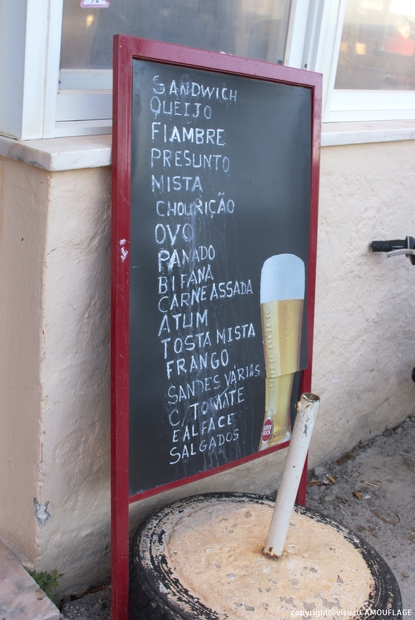 SANDWICH
QUEIJO
FIAMBRE
PRESUNTO
MISTA
CHOURIÇÃO
OVO
PANADO
BIFANA
CARNE ASSADA
ATUM
TOSTA MISTA
FRANGO
SANDES VÁRIAS
C/ TOMATE
E ALFACE
SALGADOS
copyright©visualCAMOUFLAGE